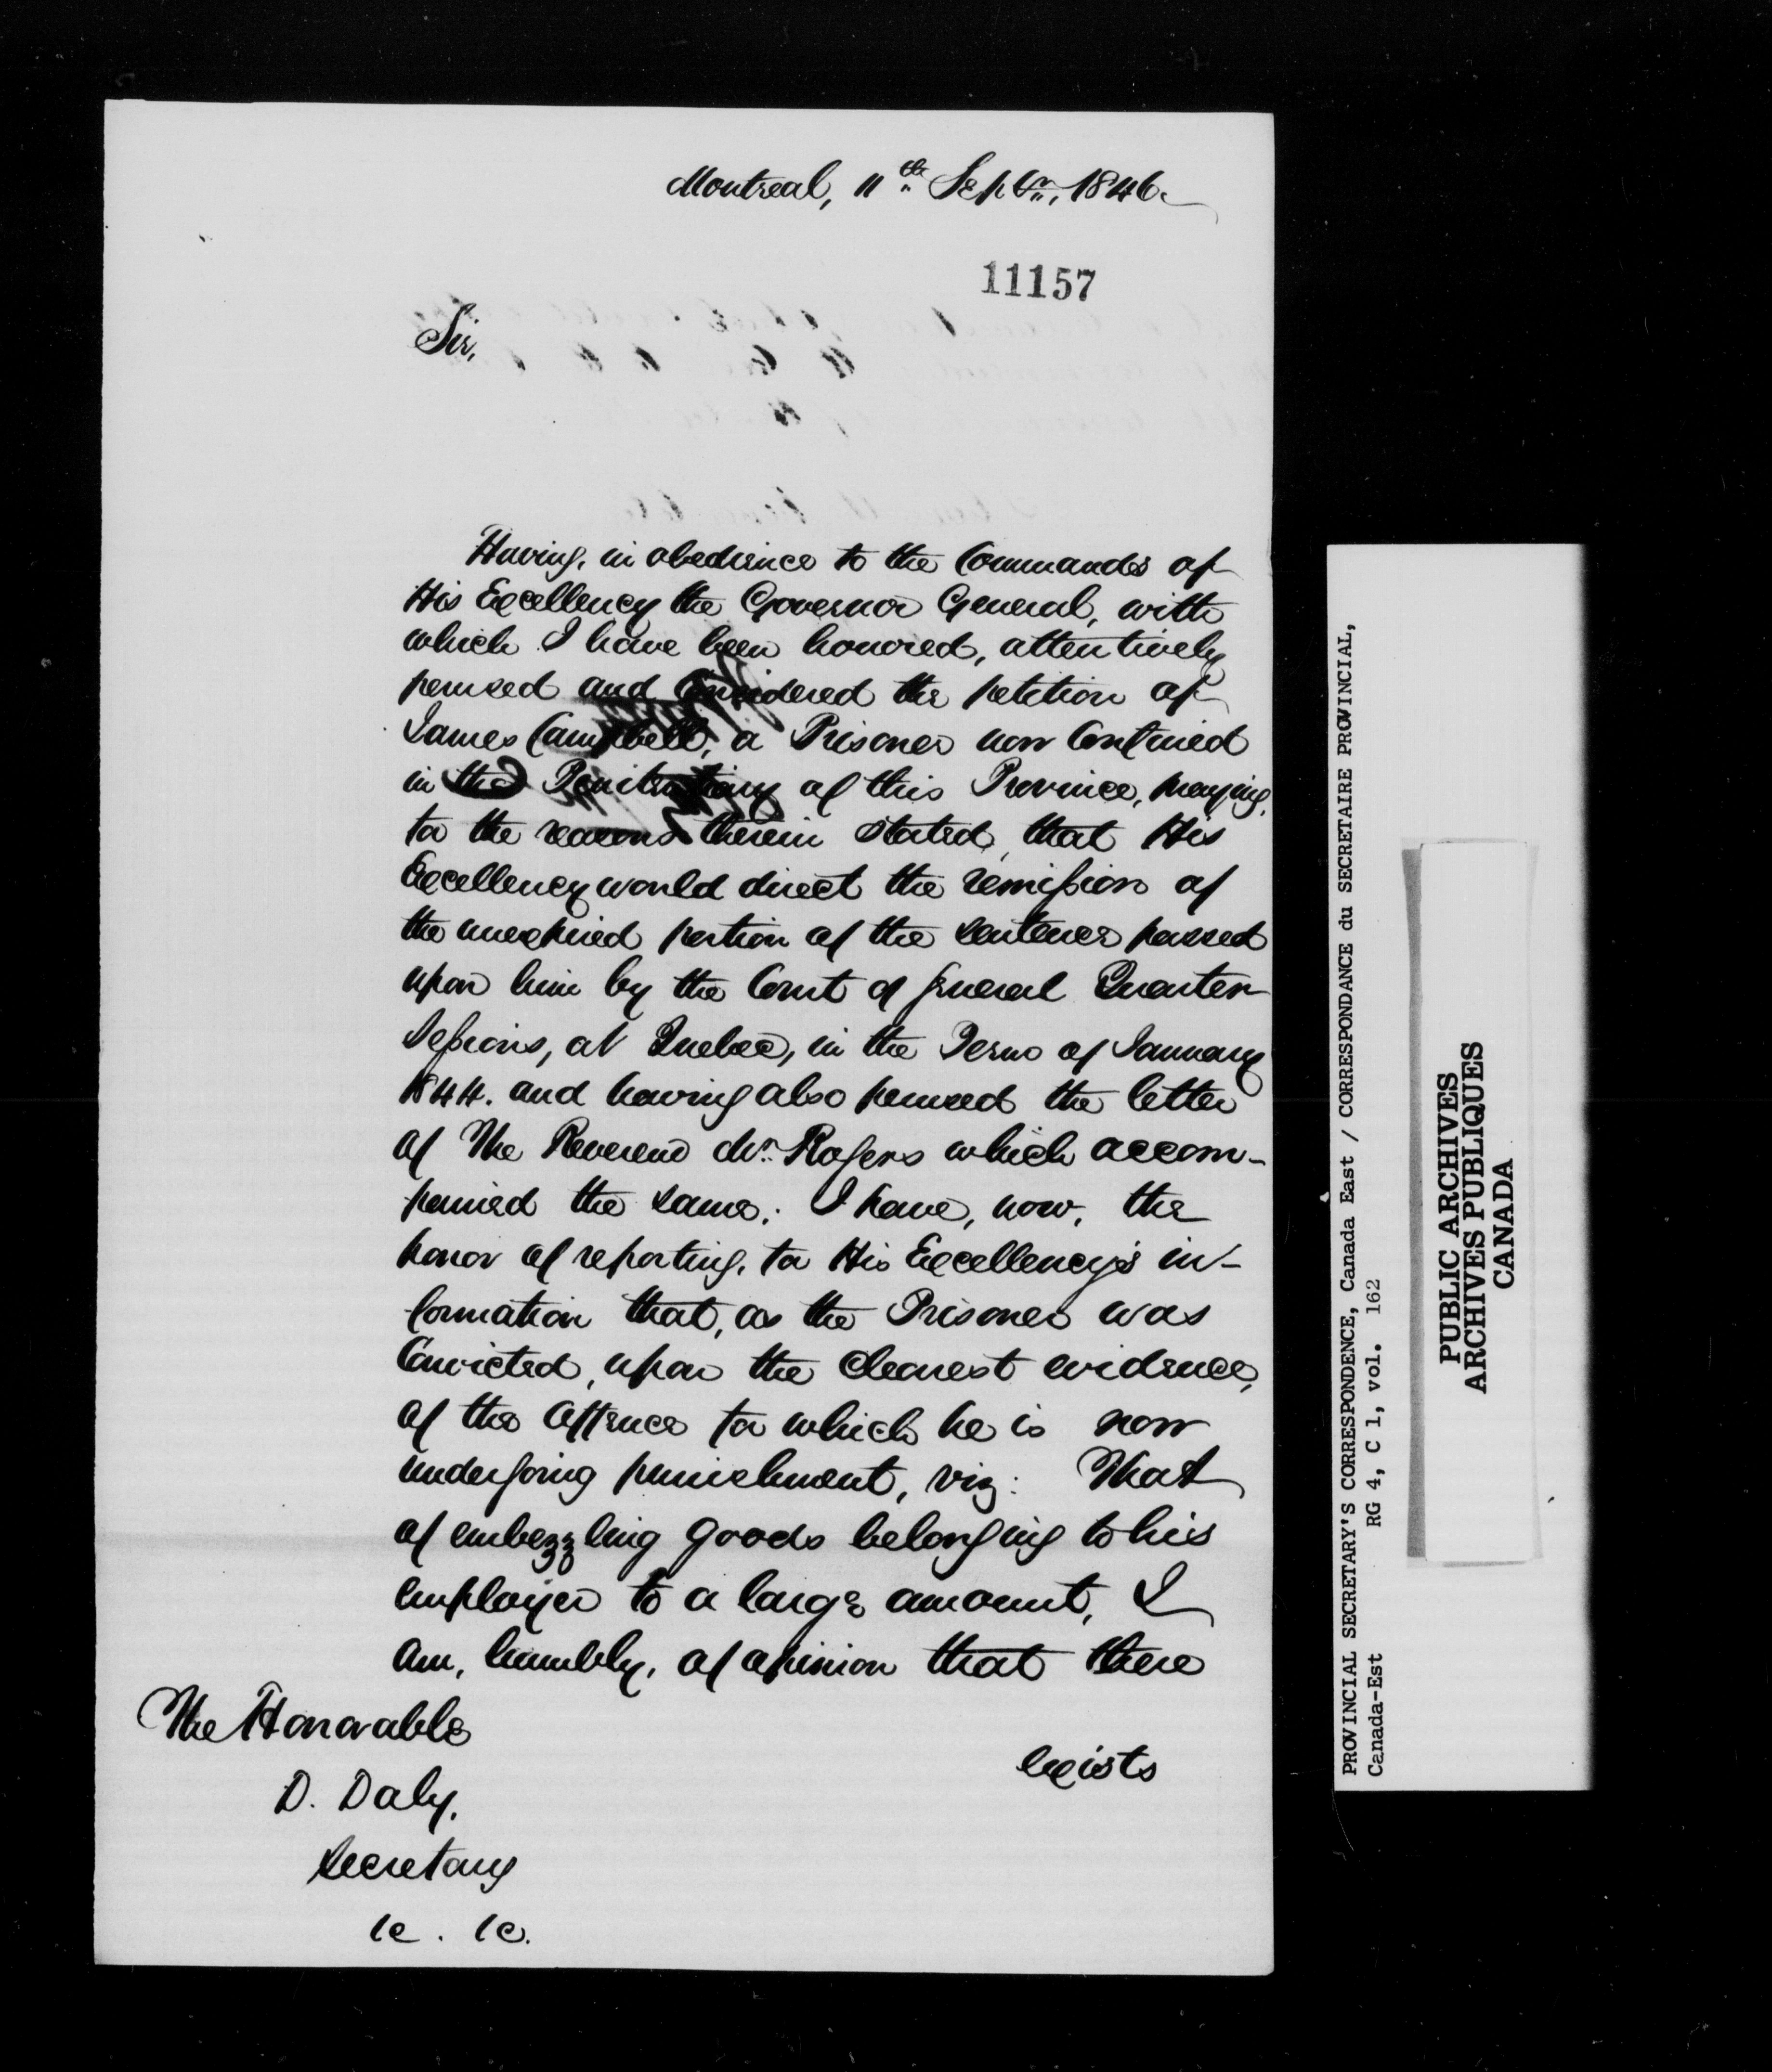 Montreal, 11th Septr., 1846.
11157
Sir,
Having, in obedience to the Commands of
His Excellency the Governor General, with
which I have been honored, attentively
perused and Considered the petition of
James Campbell, a Prisoner now Confined
in the Penitentiary of this Province, praying,
for the reasons therein stated, that His
Excellency would direct the remission of
the unexpired portion of the sentence passed
upon him by the Court of General Quarter
Sessions, at Quebec, in the Term of January
1844. and having also perused the letter
of The Reverend Mr. Rogers which accom-
panied the same; I have, now, the
honor of reporting, for His Excellency's in-
formation that, as the Prisoner was
Convicted, upon the clearest evidence,
of the offence for which he is now
undergoing punishment, viz: That
of embezzling goods belonging to his
employer to a large amount, I
am, humbly, of opinion that there
exists
The Honorable
D. Daly,
Secretary
&c. &c.
PROVINCIAL SECRETARY'S CORRESPONDENCE, Canada East / CORRESPONDANCE du SECRETAIRE PROVINCIAL,
Canada-Est RG 4, C 1, vol. 162
PUBLIC ARCHIVES
ARCHIVES PUBLIQUES
CANADA